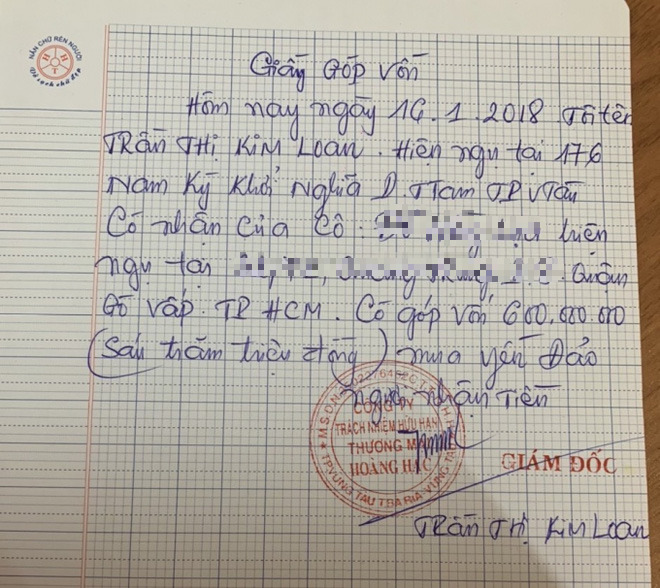 NẮN CHỮ RÈN NGƯỜI
HT
Giấy Góp Vốn
Hôm nay ngày 16.1.2018 Tôi tên
TRẦN THỊ KIM LOAN. Hiện ngụ tại 176
Nam Kỳ Khởi Nghĩa P. TTam TP VTàu
Có nhận của Cô: hiện
ngụ tại Quận
Gò Vấp. TP HCM. Có góp vốn 600.000.000
(Sáu trăm triệu đồng) mua yến Đảo
người nhận Tiền
CÔNG TY
TRÁCH NHIỆM HỮU HẠN
THƯƠNG MẠI
HOÀNG HẠC
TP.VŨNG TÀU T.BÀ RỊA-VŨNG TÀU
GIÁM ĐỐC
TRẦN THỊ KIM LOAN